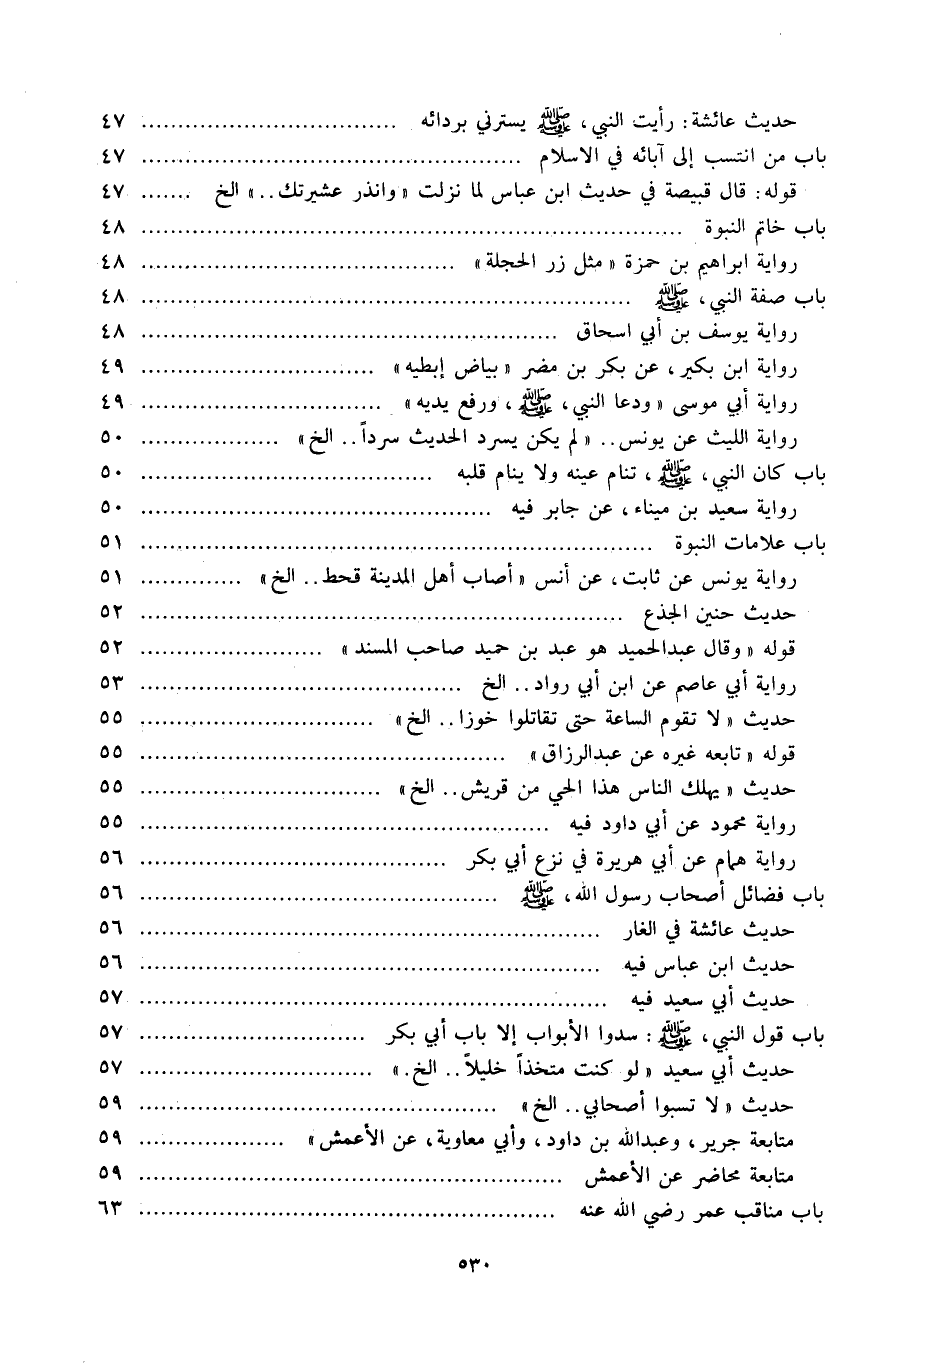 حديث عائشة: رأيت النبي، ﷺ يسترني بردائه ................................... ٤٧
باب من انتسب إلى آبائه في الاسلام .................................................... ٤٧
قوله: قال قبيصة في حديث ابن عباس لما نزلت « وانذر عشيرتك..» الخ ....... ٤٧
باب خاتم النبوة .......................................................................... ٤٨
رواية ابراهيم بن حمزة « مثل زر الحجلة » ........................................... ٤٨
باب صفة النبي، ﷺ ................................................................... ٤٨
رواية يوسف بن أبي اسحاق ......................................................... ٤٨
رواية ابن بكير، عن بكر بن مضر « بياض إبطيه » ................................ ٤٩
رواية أبي موسى « ودعا النبي، ﷺ، ورفع يديه » ................................. ٤٩
رواية الليث عن يونس.. « لم يكن يسرد الحديث سرداً.. الخ » ................... ٥٠
باب كان النبي، ﷺ، تنام عينه ولا ينام قلبه ........................................ ٥٠
رواية سعيد بن ميناء، عن جابر فيه ................................................ ٥٠
باب علامات النبوة ...................................................................... ٥١
رواية يونس عن ثابت، عن أنس « أصاب أهل المدينة قحط.. الخ » .............. ٥١
حديث حنين الجذع .................................................................. ٥٢
قوله « وقال عبدالحميد هو عبد بن حميد صاحب المسند » ......................... ٥٢
رواية أبي عاصم عن ابن أبي رواد.. الخ ............................................ ٥٣
حديث « لا تقوم الساعة حتى تقاتلوا خوزا.. الخ » ................................ ٥٥
قوله « تابعه غيره عن عبدالرزاق » .................................................. ٥٥
حديث « يهلك الناس هذا الحي من قريش.. الخ » ................................. ٥٥
رواية محمود عن أبي داود فيه ........................................................ ٥٥
رواية همام عن أبي هريرة في نزع أبي بكر .......................................... ٥٦
باب فضائل أصحاب رسول الله، ﷺ ................................................. ٥٦
حديث عائشة في الغار ............................................................... ٥٦
حديث ابن عباس فيه ............................................................... ٥٦
حديث أبي سعيد فيه ................................................................ ٥٧
باب قول النبي، ﷺ: سدوا الأبواب إلا باب أبي بكر ............................... ٥٧
حديث أبي سعيد « لو كنت متخذاً خليلاً.. الخ.» ................................ ٥٧
حديث « لا تسبوا أصحابي.. الخ » ................................................. ٥٩
متابعة جرير، وعبدالله بن داود، وأبي معاوية، عن الأعمش » .................... ٥٩
متابعة محاضر عن الأعمش .......................................................... ٥٩
باب مناقب عمر رضي الله عنه ......................................................... ٦٣
٥٣٠